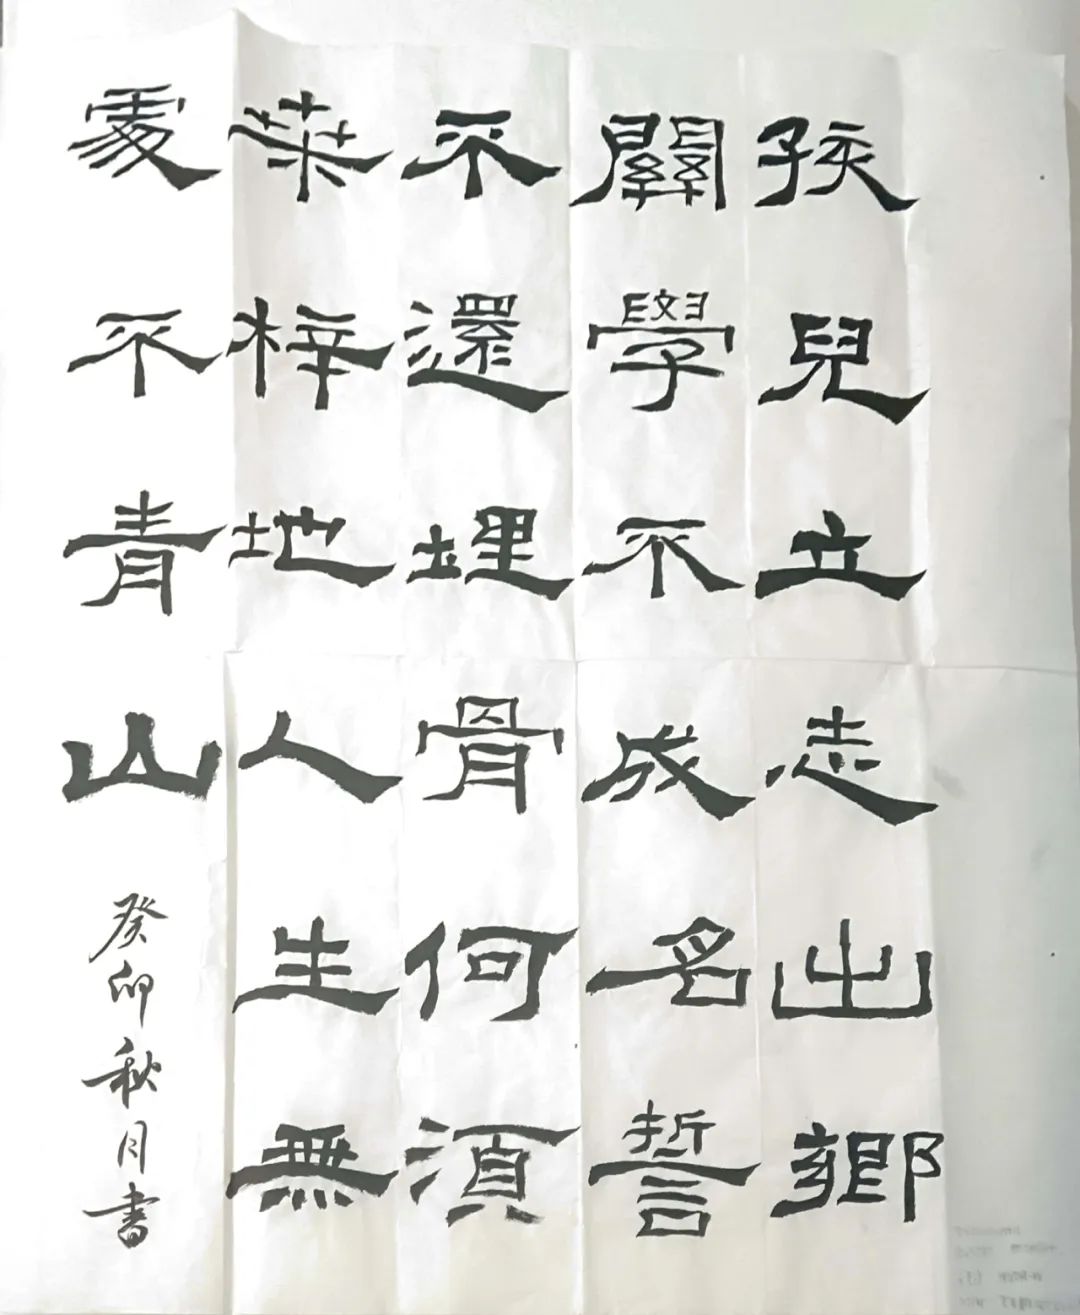 孩兒立志出鄉
關學不成名誓
不還埋骨何須
桒梓地人生無
處不青山
癸卯秋月書